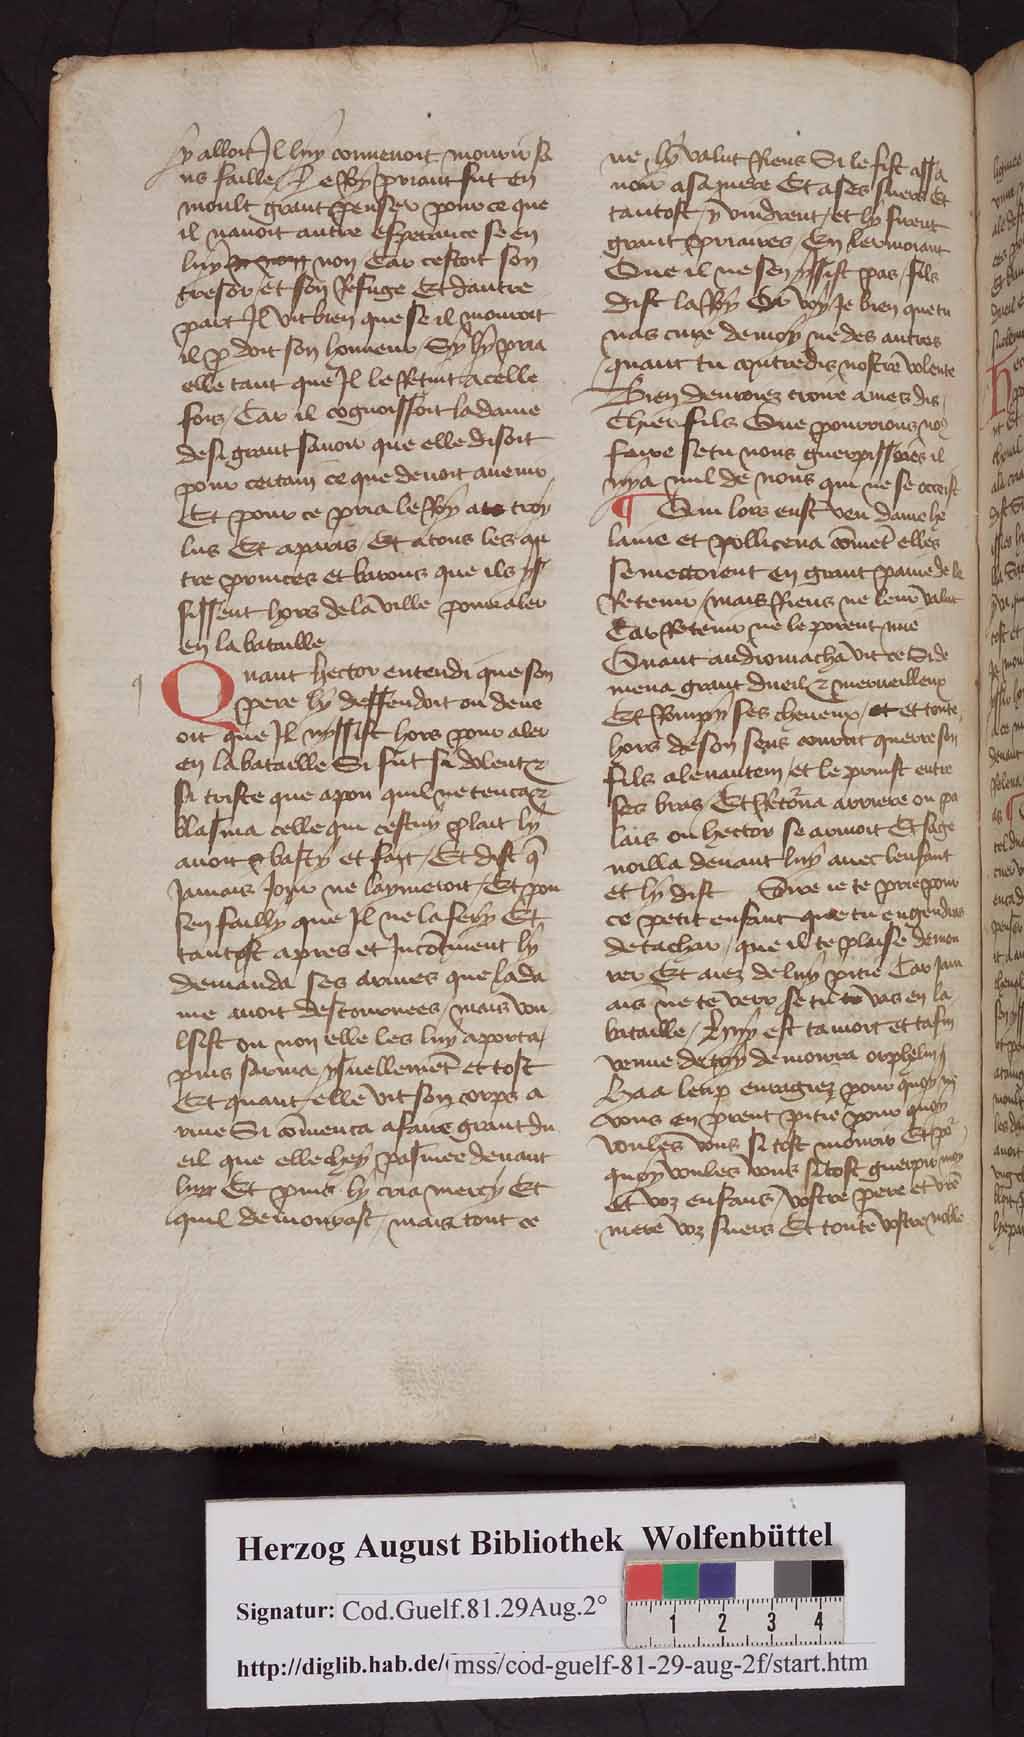 y alloit Il luy conuenoit mourir sa
ns faille Le Roy priant fut en
moult grant penser pour ce que
il nauoit autre esperance se en
luy non Car cestoit son
tresor et son Refuge Et dautre
part Il vit bien que se il mouroit
il pdoit son honneur Sy ly pria
elle tant que Il le Retint a celle
fois Car il cognoissoit la dame
de si grant sauoir que elle disoit
pour certain ce que deuoit auenir
Et pour ce pria le Roy a troy
lus Et a paris Et a tous les au
tre princes et barons que ils yss
sissent hors de la ville pour aler
en la bataille
Quant hector entendi que son
pere ly deffendoit ou deue
oit que Il nyssist hors pour aler
en la bataille Si fut si dolent et
si triste que a pou quil ne tenca et
blasma celle qui cestuy plait ly
auoit basty et fait Et dist q̄
Jamais Jour ne laymeroit Et pou
sen failly que Il ne la fery Et
tantost apres et Incōtinent ly
demanda ses armes que la da
me auoit destournees mais vou
lsist ou non elle les luy aporta
puis sarma ysnellemēt et tost
Et quant elle vit son corps a
rme Si cōmenca a faire grant du
eil que elle chey pasmee deuant
luy Et puis ly cria mercy Et
quil demourast mais tout ce
ne ly valut Riens Si le fist assa
uoir a sa mere Et a ses suers Et
tantost y vindrent et ly firent
grant priaires En lermoiant
Que il ne sen yssist pas fils
dist la Roy Or voy Je bien que tu
nas cure de moy ne des autres
quant tu contredis nostre volente
Bien deuroiez croire a mes dis
Chier fils Que pourrions no9
faire se tu nous guerpissoies il
ny a nul de nous qui ne se occeist
¶ Qui lors eust veu dame he
laine et pollicena cōmēt elles
se mettoient en grant paine de le
Retenir mais Riens ne leur valut
Car Retenir ne le porent mie
Quant andromacha vit ce Si de
mena grant dueil et merueilleux
Et Rompy ses cheueux et toute
hors de son sens couroit querre son
fils alenantem et le prinst entre
ses bras Et Retorna arriere ou pa
lais ou hector se armoit Et sage
noilla deuant luy auec lenfant
et ly dist Sire ie te prie pour
ce petit enfant que tu engendras
de ta char que il te plaise demou
rer Et aiez de luy pitie Car Jam
ais ne te verr se tu vas en la
bataille Huy est ta mort et ta fin
venue de toy demoura orphelin
Haa letip enragiez pour quoy ne
vous en prent pitie pour quoy
voules vous si tost mourir Et po
quoy voules vous si tost guerpir moy
Et voz enfans vostre pere et vrē
mere voz suers Et toute vostre noble
Herzog August Bibliothek Wolfenbüttel
Signatur: Cod.Guelf.81.29Aug.2°
1 2 3 4
http://diglib.hab.de/mss/cod-guelf-81-29-aug-2f/start.htm